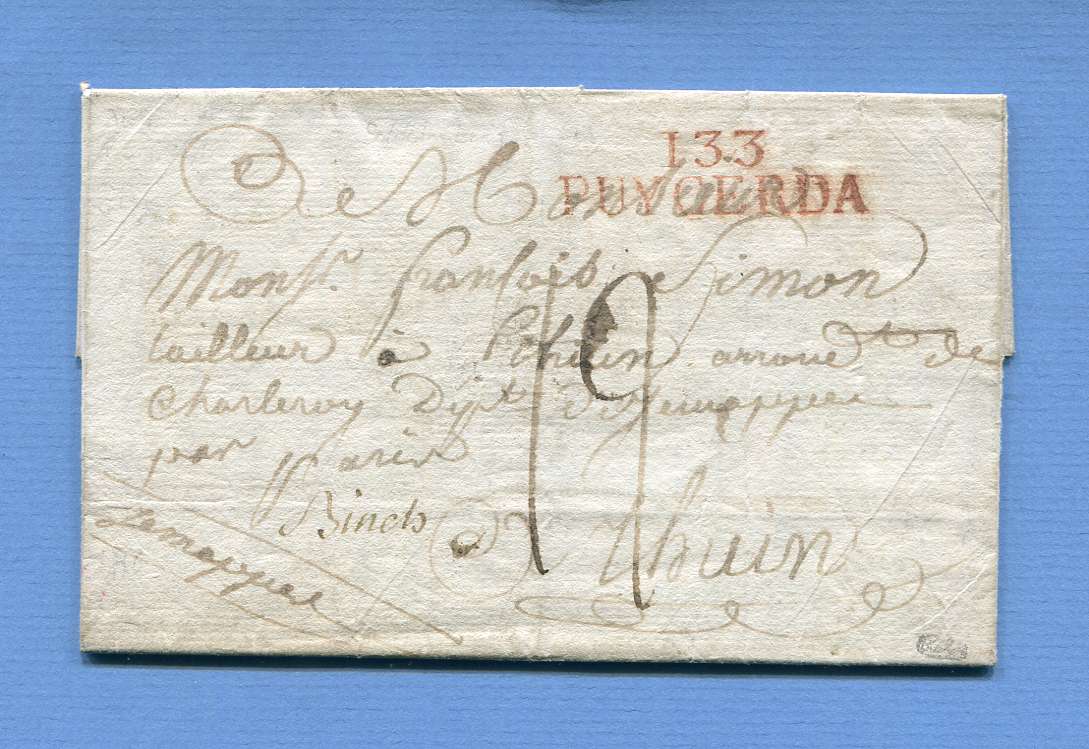 133
PUYCERDA
A Monsieur
Monsr. françois Simon
tailleur à thuin arrone dt de
Charleroy Dipt de Jemappes
par paris
Binch
19
à thuin
Jemappes